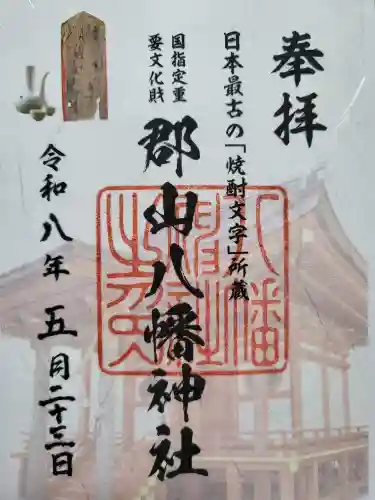 奉拝
日本最古の「焼酎文字」所蔵
国指定重
要文化財
郡山八幡神社
令和八年 五月二十三日